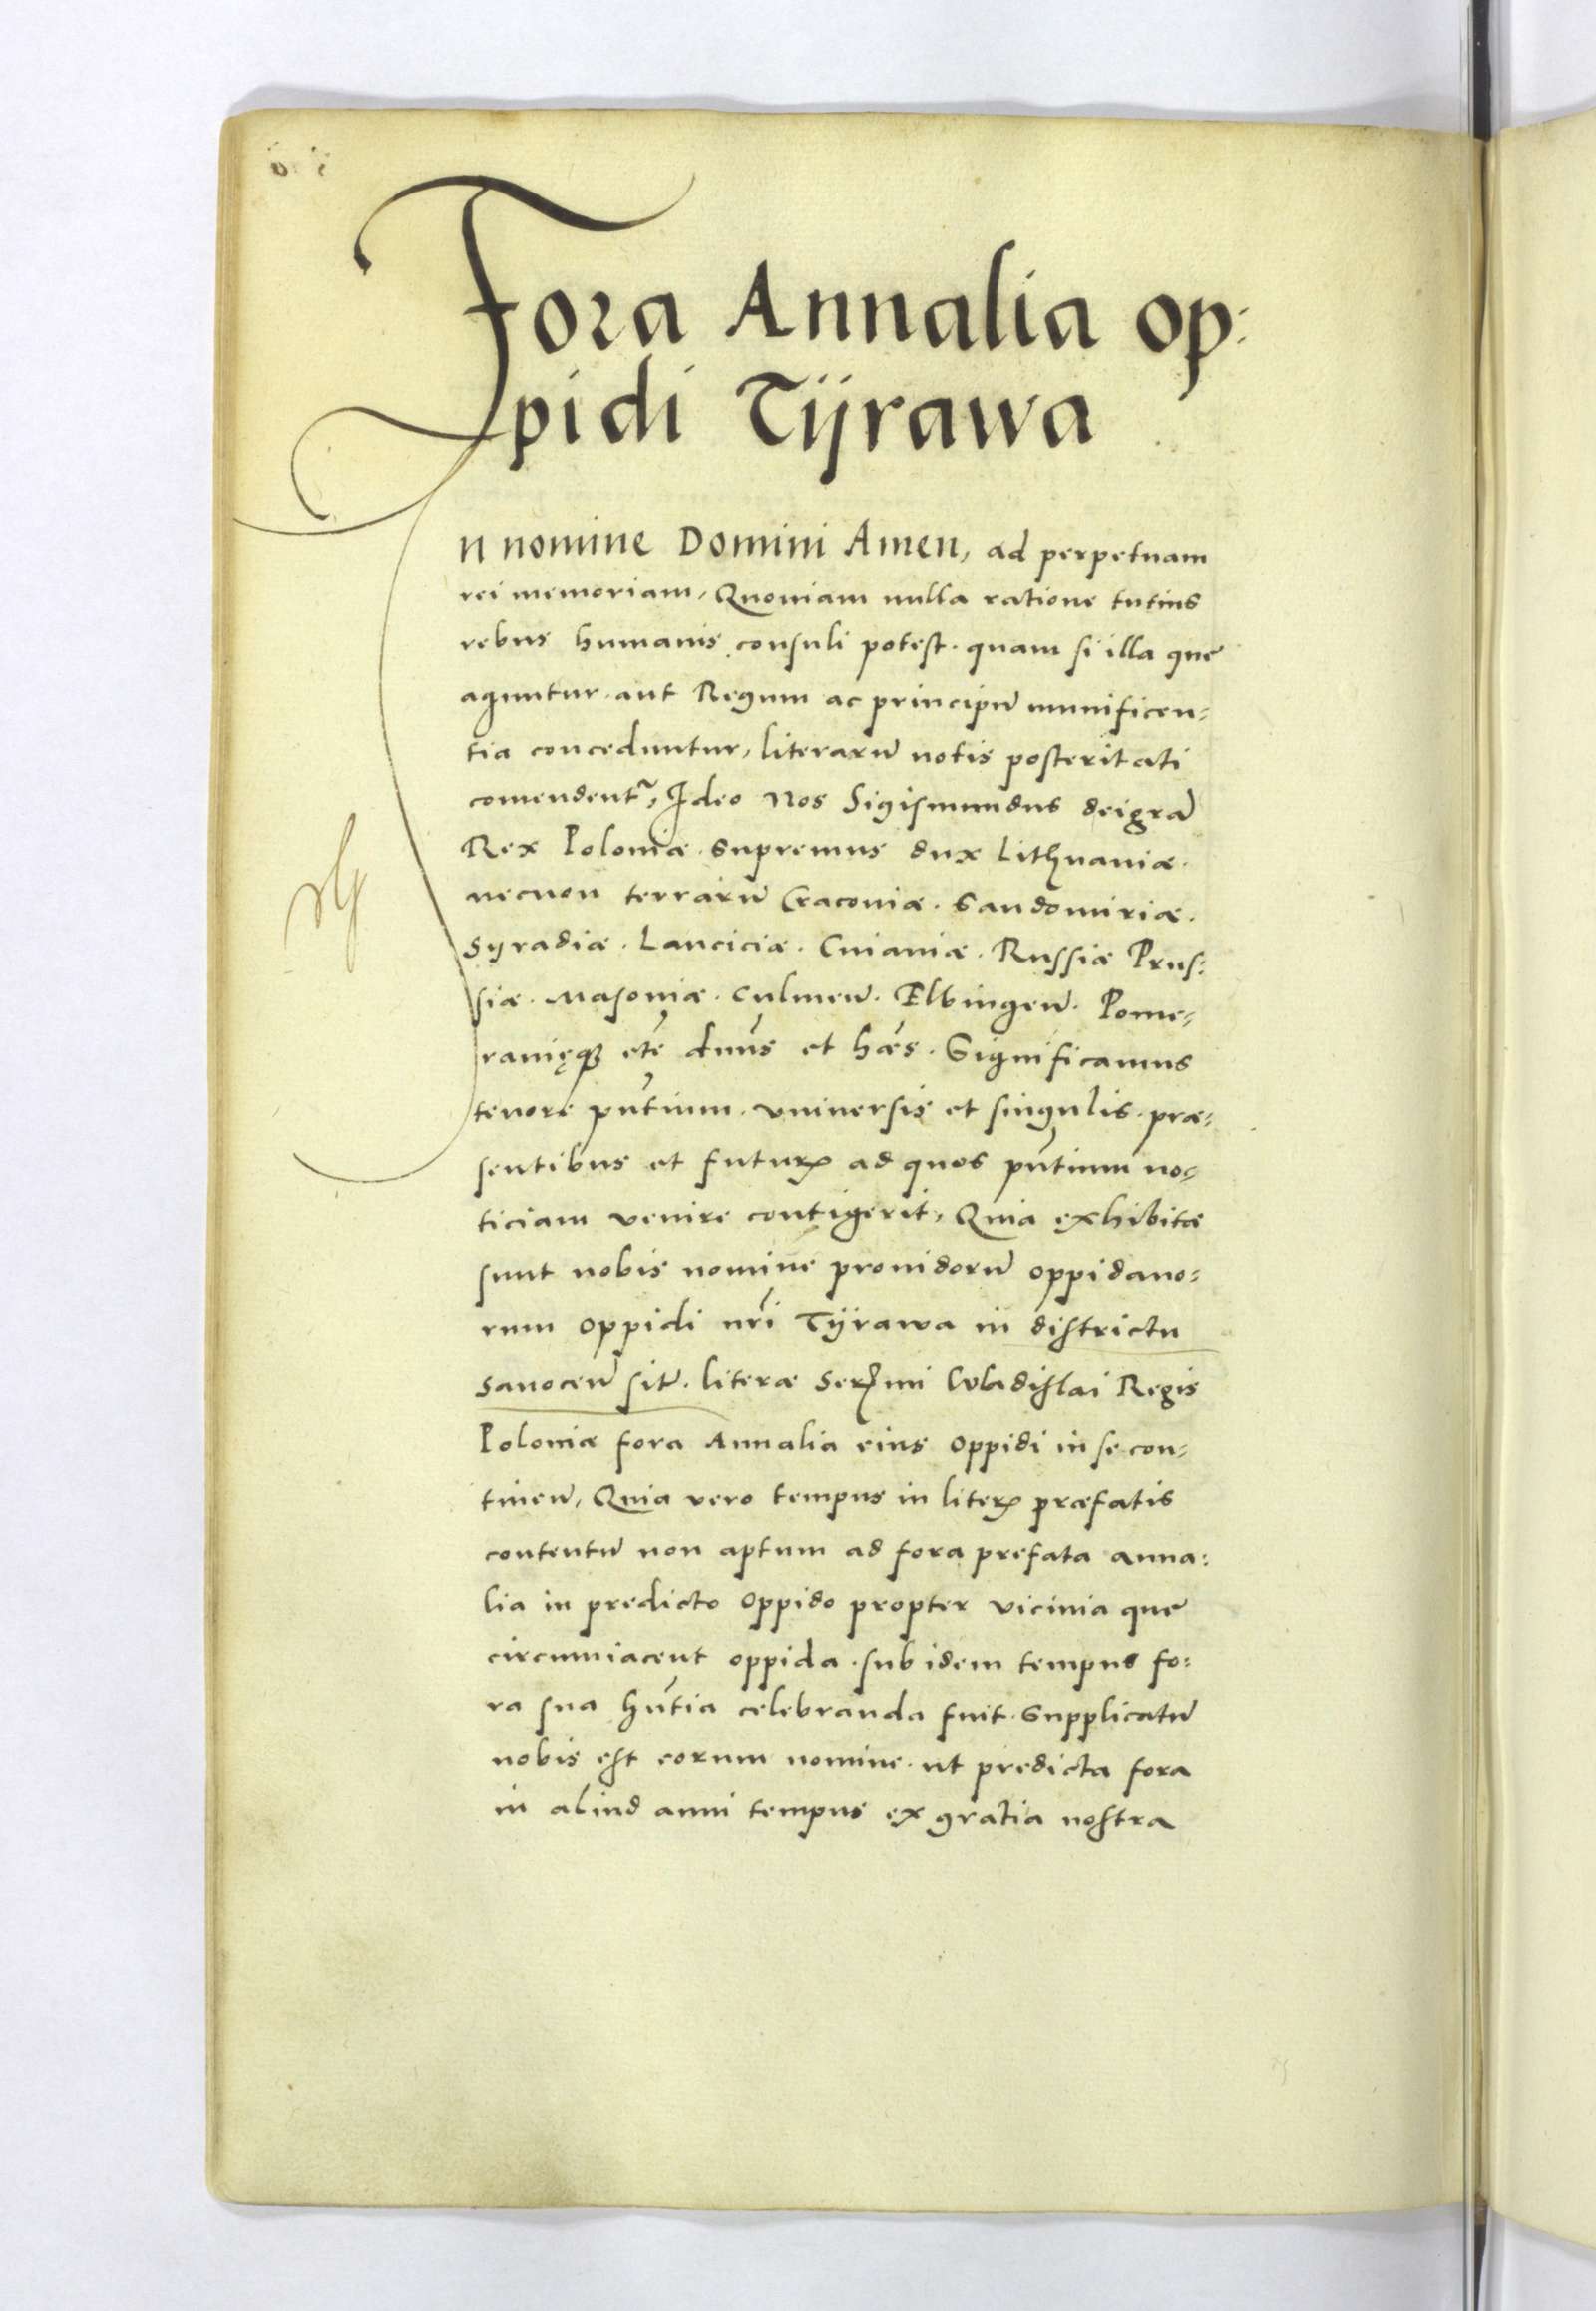 Fora Annalia op:
pidi Tÿrawa
In nomine Domini Amen, ad perpetuam
rei memoriam, Quoniam nulla ratione tutius
rebus humanis consuli potest. quam si illa que
aguntur. aut Regum ac principũ munificen-
tia conceduntur, literarũ notis posteritati
comendentr̃, Ideo Nos Sigismundus dei grã
Rex Poloniæ. Supremus dux Lithuaniæ.
necnon terrarũ Cracoviæ. Sandomiriæ.
Syradiæ. Lanciciæ. Cuiaviæ. Russiæ Prus:
siæ. Masoviæ. Culmeñ. Elbingeñ. Pome-
ranięqꝫ etc̃ dñus et hæs. Significamus
tenore pñtium. universis et singulis. præ-
sentibus et futurꝭ ad quos pñtium no-
ticiam venire contigerit, Quia exhibitæ
sunt nobis nomine providorũ oppidano-
rum oppidi nr̃i Tÿrawa in districtu
Sanoceñ sit̃. literæ Serꝭmi Wladislai Regis
Poloniæ fora Annalia eius oppidi in se con-
tineñ, Quia vero tempus in literꝭ præfatis
contentũ non aptum ad fora prefata anna:
lia in predicto oppido propter vicinia que
circumiacent oppida. sub idem tempus fo:
ra sua hñtia celebranda fuit. Supplicatũ
nobis est eorum nomine. ut predicta fora
in aliud anni tempus ex gratia nostra